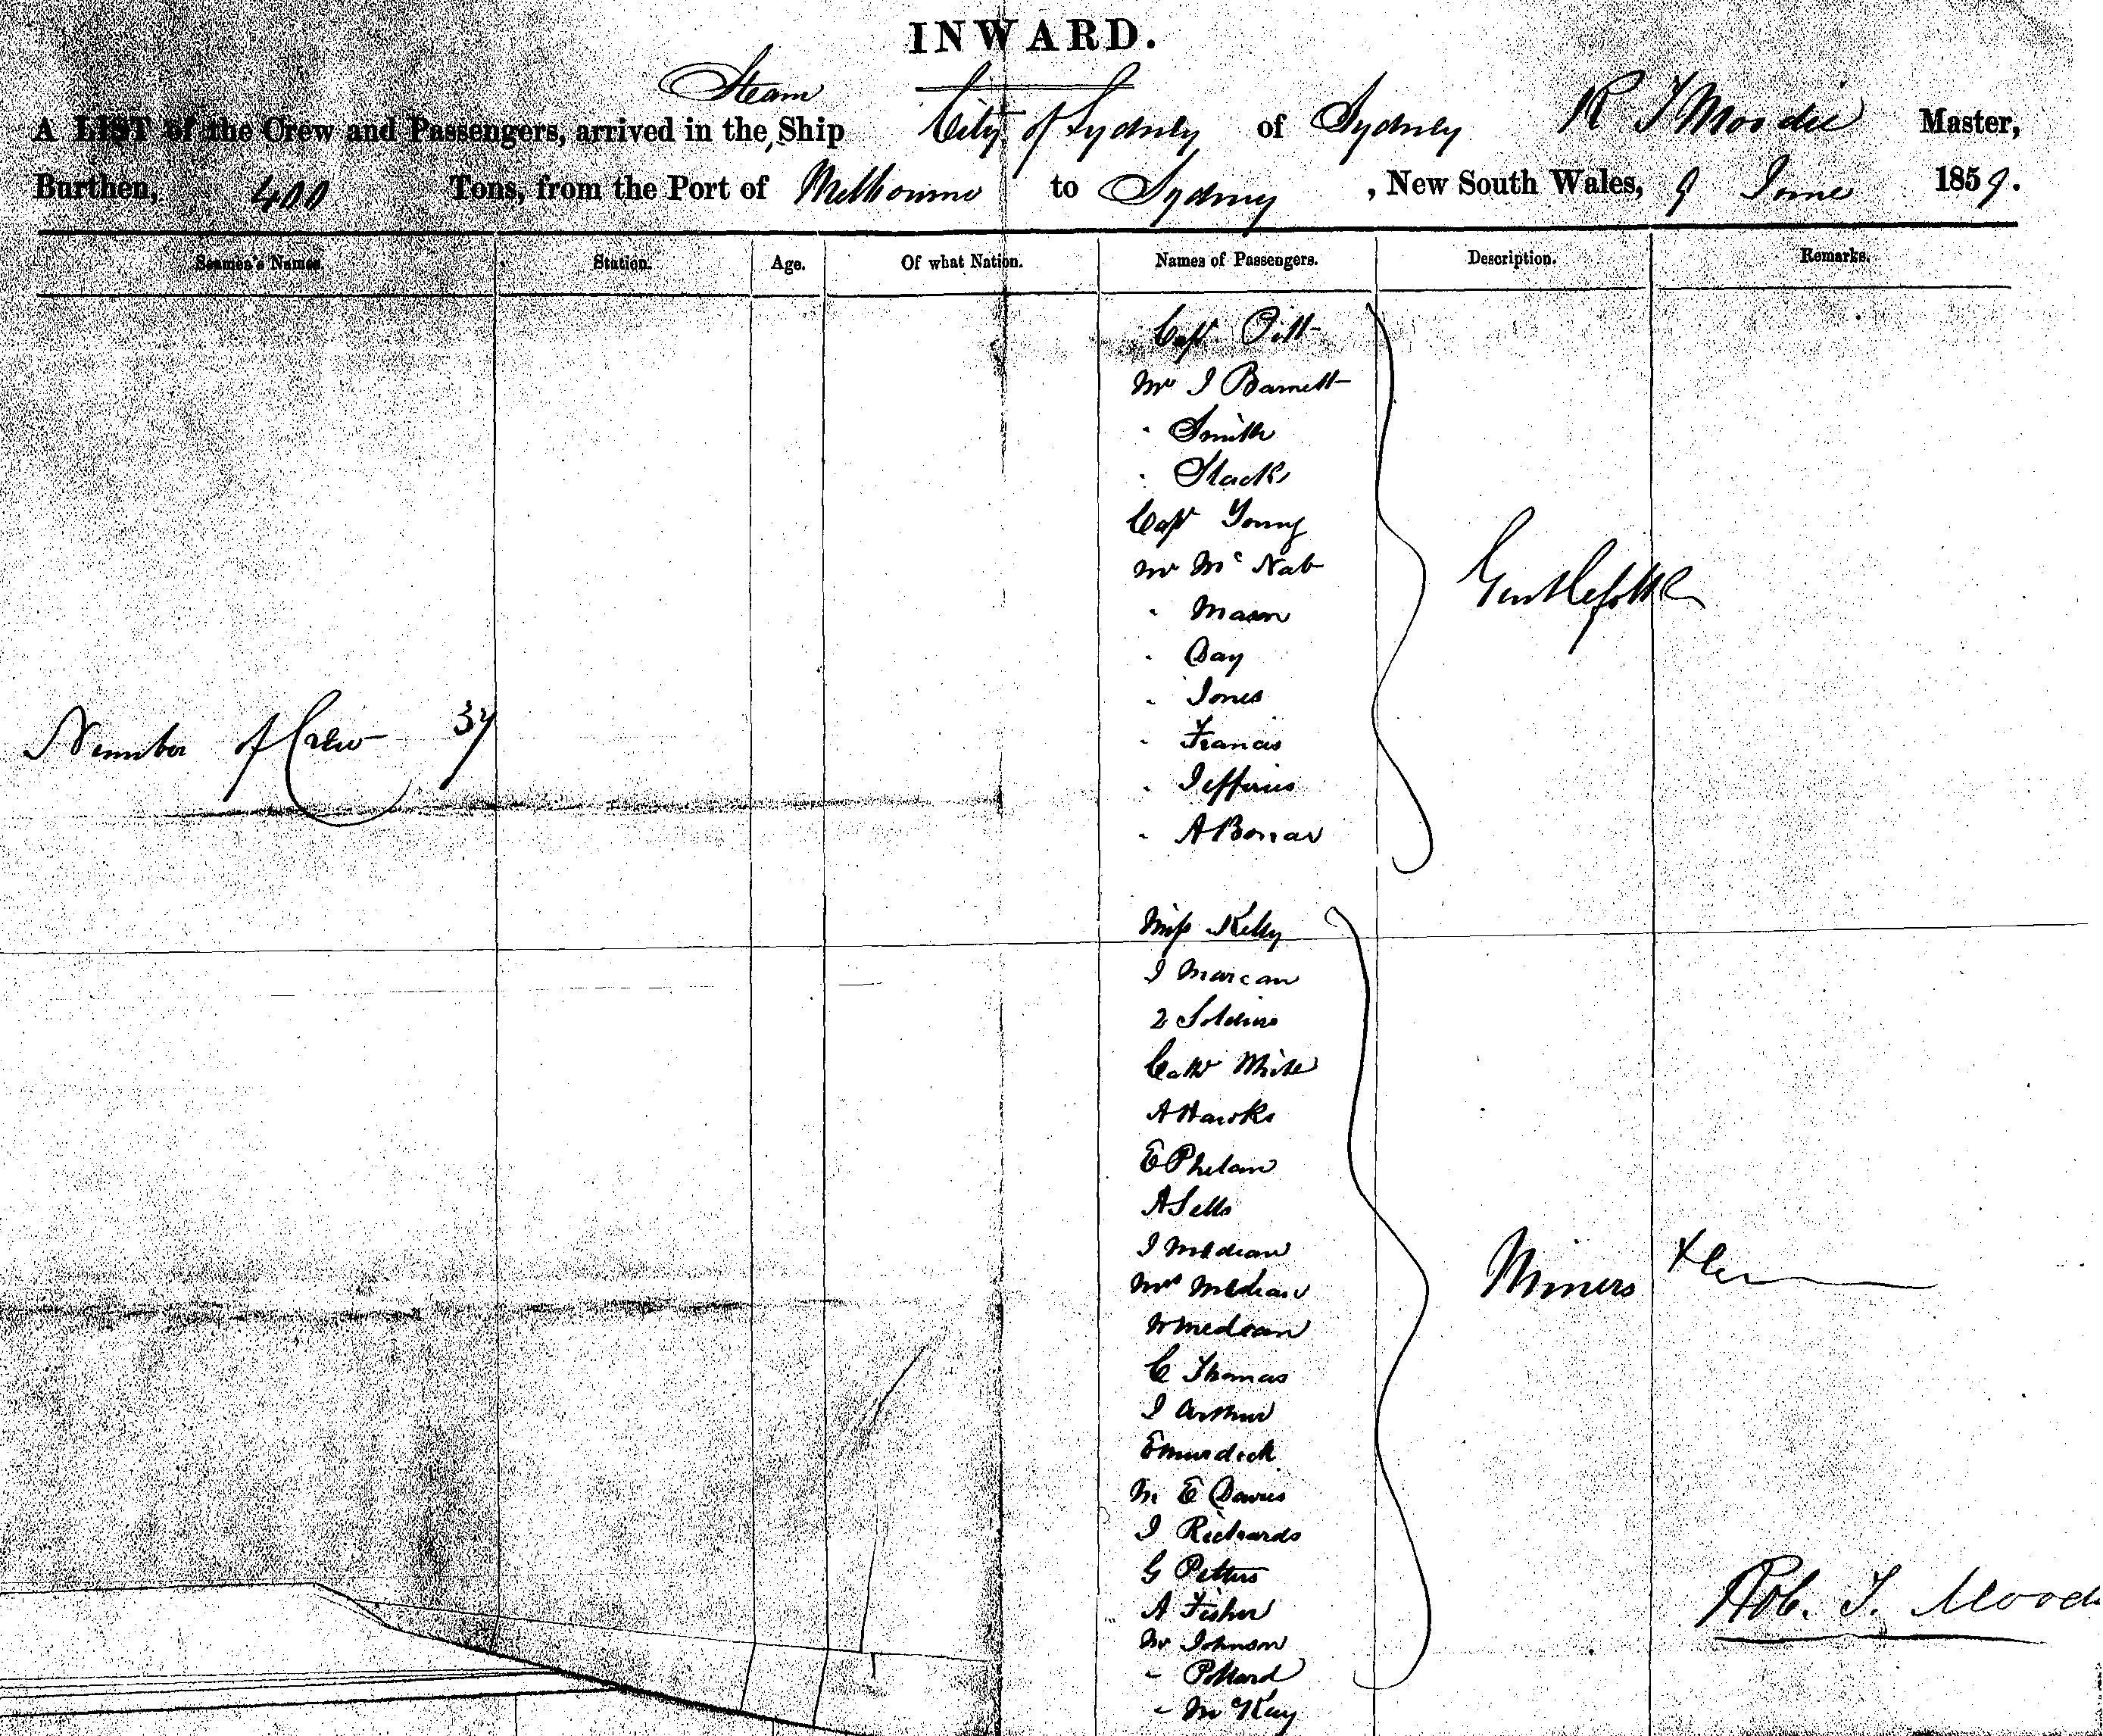 INWARD.
Steam
A LIST of the Crew and Passengers, arrived in the Ship City of Sydney of Sydney R T Moodie Master,
Burthen, 400 Tons, from the Port of Melbourne to Sydney, New South Wales, 9 June 1859.
Seamen's Names. Station. Age. Of what Nation. Names of Passengers. Description. Remarks.
Capt. Pitt
Mr J Barnett
" Smith
" Stack
Capt Young
Mr McNab
" Mason
" Day
" Jones
" Francis
" Jefferies
" A Bonar
Gentlefolk
Number of Crew 37
Miss Kelly
J
2 Soldiers
White
A Hawks
E Phelan
A Sells
J
Mrs
W
C Thomas
J Arthur
E Murdick
M E Davies
J Richards
G Petters
A Fisher
Mr Johnson
" Pollard
" McKay
Miners &c
Rob. T. Mood